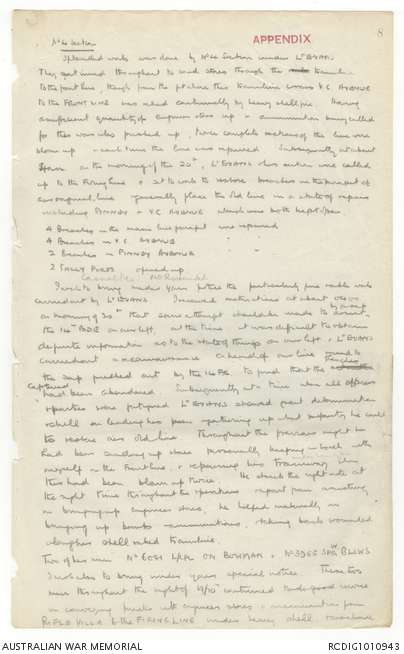 APPENDIX
8
No 4 Section
Splendid work was done by No 4 Section under Lt EVANS.
They continued throughout to send stores through the tramline
to the front line, though from the pt where this tramline crosses V.C. AVENUE
to the FRONT LINE was shelled continually by heavy shell fire. Having
a sufficient quantity of engineer stores up & ammunition being called
for this was also pushed up. Twice complete sections of the line were
blown up & each time the line was repaired. Subsequently at about
on the morning of the 20th, Lt EVANS & his section were called
up to the firing line & set to work to restore breaches in the parapet of
our original line & generally place the old line in a state of repair
including PINNEY & V.C. AVENUE which were both kept open.
4 Breaches in the main line parapet were repaired
4 Breaches in V.C. AVENUE " "
2 Breaches in PINNEY AVENUE " "
2 SALLY PORTS opened up
Casualties
I wish to bring under your notice the particularly fine work
carried out by Lt EVANS. I received instructions at about
on morning of 20th that some attempt should be made to
the 14th BDE on our left. At the time it was difficult to obtain
definite information as to the state of things on our left & Lt EVANS
carried out a reconnaissance
the sap pushed out by the 14 FE. to find that the
captured had been abandoned. Subsequently at a time when all officers
& parties were fatigued Lt EVANS showed great determination
& skill in leading his men & gathering up what infantry he could
to restore our old line. Throughout the previous night he
had been sending up stores personally keeping in touch with
myself in the front line & repairing his tramway
this had been blown up twice. He struck the right note at
the right time throughout the operations & apart from assisting
in bringing up engineer stores, he helped materially in
bringing up bombs & ammunition, & taking back wounded
along his shelled tramline.
Two of his men No 6051 L/CPL ON BOWMAN & No 3065 SPR W BLIWS
I wish also to bring under your special notice. These two
men throughout the night of 19/20th continued to do good service
in conveying trucks with engineer stores & ammunition from
RIFLE VILLA to the FIRING LINE under heavy shell
AUSTRALIAN WAR MEMORIAL
RCDIG1010943